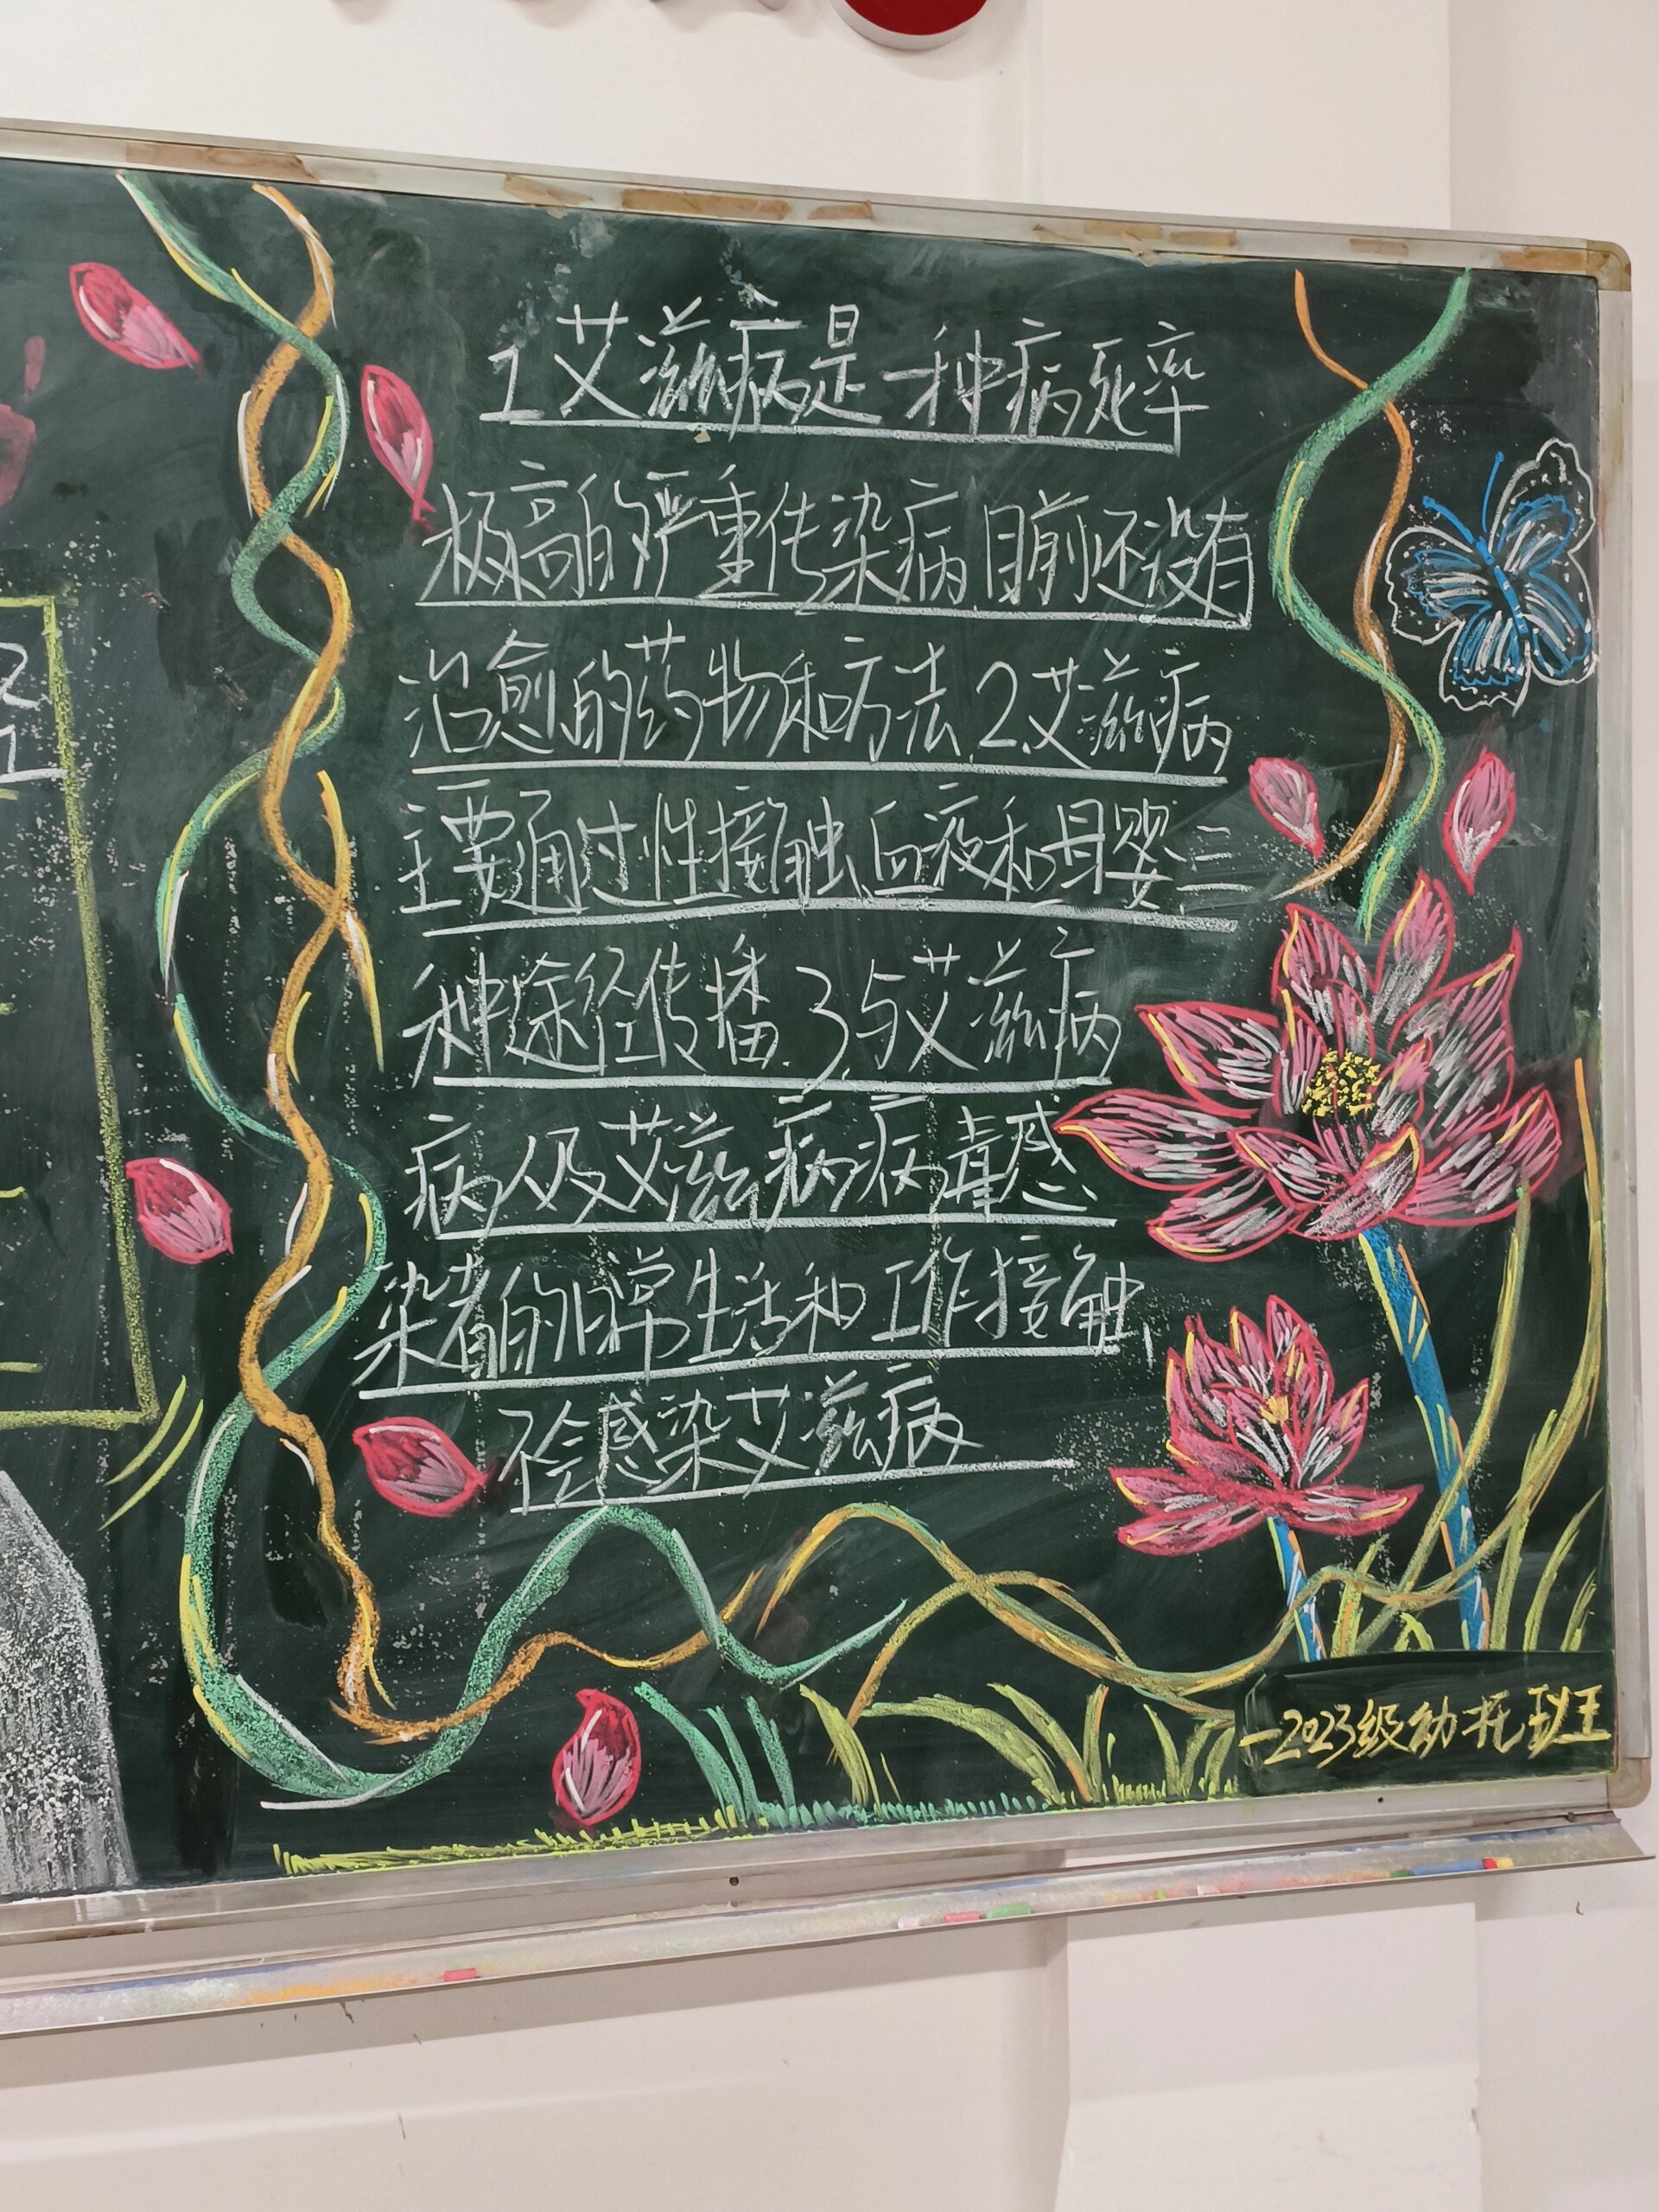 1艾滋病是一种病死率
极高的严重传染病目前还没有
治愈的药物和方法.2.艾滋病
主要通过性接触、血液和母婴三
种途径传播.3.与艾滋病
病人及艾滋病病毒感
染者的日常生活和工作接触,
不会感染艾滋病
-2023级幼托班